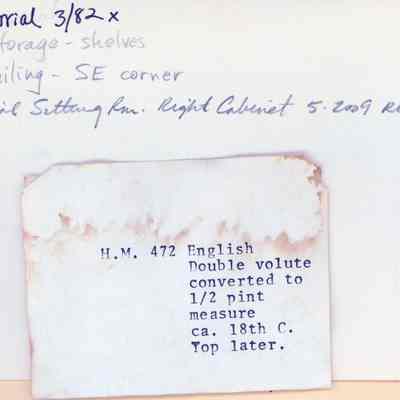 orial 3/82 x
torage - shelves
eiling - SE corner
Sitting Rm. Right Cabinet 5.2009
H.M. 472 English
Double volute
converted to
1/2 pint
measure
ca. 18th C.
Top later.